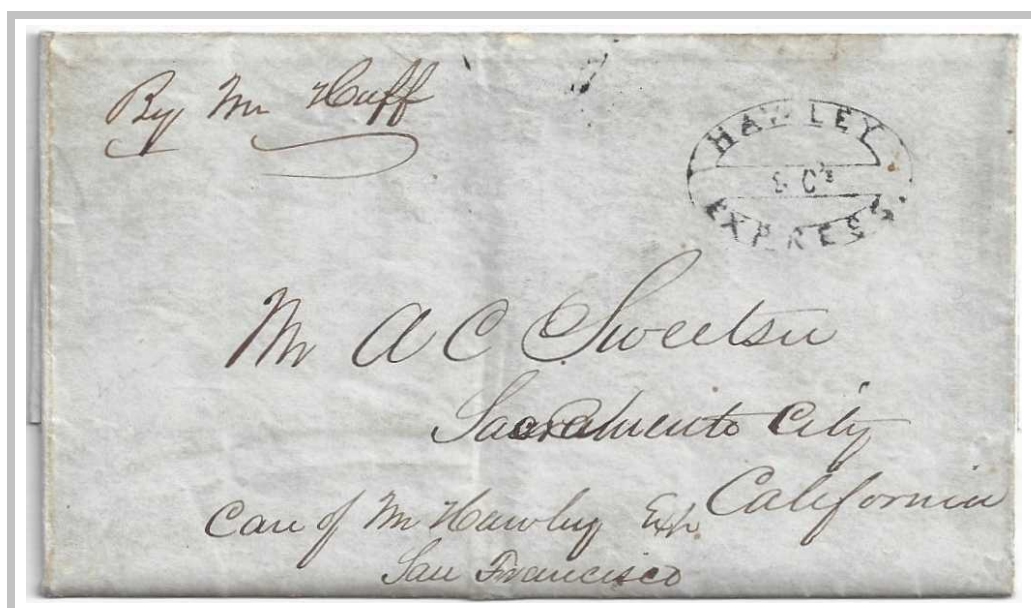 By Mr Huff
HAWLEY
& Co's
EXPRESS
Mr A C Sweetser
Sacramento City
California
Care of Mr Hawley Exp.
San Francisco